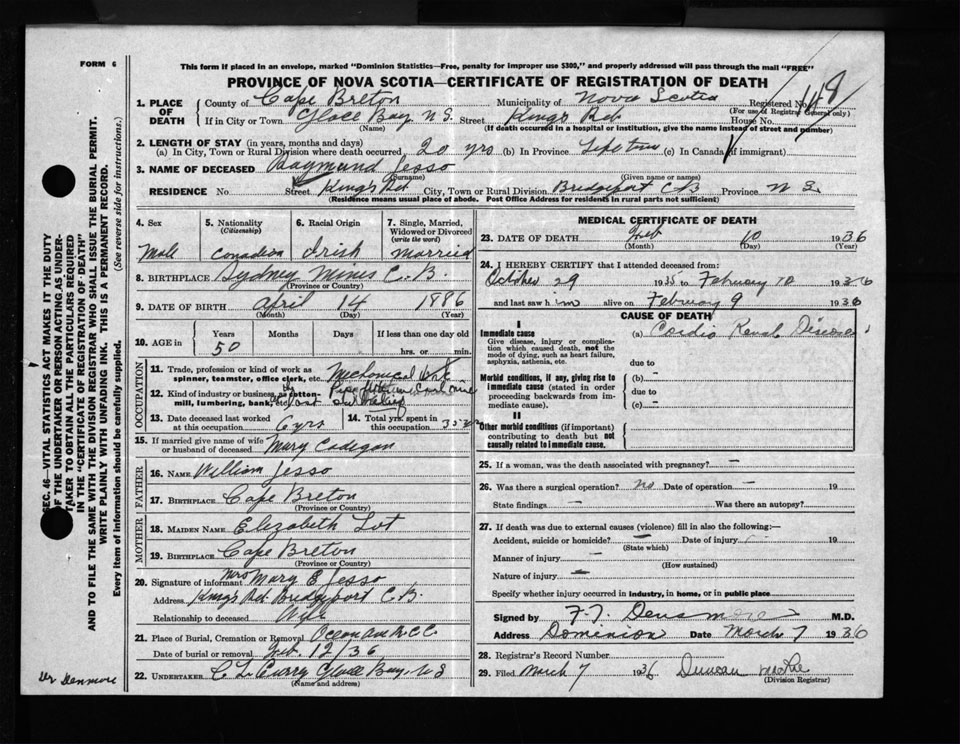 FORM 6
This form if placed in an envelope, marked "Dominion Statistics—Free, penalty for improper use $300," and properly addressed will pass through the mail "FREE"
PROVINCE OF NOVA SCOTIA—CERTIFICATE OF REGISTRATION OF DEATH
1. PLACE OF DEATH County of Cape Breton Municipality of Nova Scotia Registered No. 148
(For use of Registrar General only)
If in City or Town Glace Bay N S Street Kings Rd House No.
(Name) (If death occurred in a hospital or institution, give the name instead of street and number)
2. LENGTH OF STAY (in years, months and days)
(a) In City, Town or Rural Division where death occurred 20 yrs (b) In Province Life time (c) In Canada (if immigrant)
3. NAME OF DECEASED Raymund Jesso
(Surname) (Given name or names)
RESIDENCE No. Street Kings Rd City, Town or Rural Division Bridgeport C B Province N S.
(Residence means usual place of abode. Post Office Address for residents in rural parts not sufficient)
4. Sex 5. Nationality (Citizenship) 6. Racial Origin 7. Single, Married, Widowed or Divorced (write the word)
Male Canadian Irish married
8. BIRTHPLACE Sydney Mines C. B.
(Province or Country)
9. DATE OF BIRTH April 14 1886
(Month) (Day) (Year)
10. AGE in Years Months Days If less than one day old
50 hrs. or min.
OCCUPATION
11. Trade, profession or kind of work as spinner, teamster, office clerk, etc. Mechanical Work
12. Kind of industry or business, as cotton-mill, lumbering, bank, etc.
13. Date deceased last worked at this occupation 6 yrs 14. Total yrs. spent in this occupation
15. If married give name of wife or husband of deceased Mary Cadegan
FATHER
16. NAME William Jesso
17. BIRTHPLACE Cape Breton
(Province or Country)
MOTHER
18. MAIDEN NAME Elizabeth Lot
19. BIRTHPLACE Cape Breton
(Province or Country)
20. Signature of informant Mrs Mary E Jesso
Address Kings Rd Bridgeport C B.
Relationship to deceased Wife
21. Place of Burial, Cremation or Removal
Date of burial or removal Feb. 12/36
22. UNDERTAKER C L Curry Glace Bay N S
(Name and address)
MEDICAL CERTIFICATE OF DEATH
23. DATE OF DEATH Feb 10 1936
(Month) (Day) (Year)
24. I HEREBY CERTIFY that I attended deceased from:
October 29 1935 to February 10 1936
and last saw him alive on February 9 1936
CAUSE OF DEATH
I
Immediate cause (a) Cardio Renal Disease
Give disease, injury or complication which caused death, not the mode of dying, such as heart failure, asphyxia, asthenia, etc.
due to
Morbid conditions, if any, giving rise to immediate cause (stated in order proceeding backwards from immediate cause). (b) —
due to
(c) —
II
Other morbid conditions (if important) contributing to death but not causally related to immediate cause.
25. If a woman, was the death associated with pregnancy? —
26. Was there a surgical operation? No Date of operation — 19
State findings — Was there an autopsy?
27. If death was due to external causes (violence) fill in also the following:—
Accident, suicide or homicide? — Date of injury 19
(State which)
Manner of injury —
(How sustained)
Nature of injury —
Specify whether injury occurred in industry, in home, or in public place
Signed by F. J. Densmore M.D.
Address Dominion Date March 7 1936
28. Registrar's Record Number
29. Filed March 7 1936 Duncan McRae
(Division Registrar)
SEC. 46—VITAL STATISTICS ACT MAKES IT THE DUTY
OF THE UNDERTAKER OR PERSON ACTING AS UNDER-
TAKER TO OBTAIN ALL THE PARTICULARS REQUIRED
IN THE "CERTIFICATE OF REGISTRATION OF DEATH"
AND TO FILE THE SAME WITH THE DIVISION REGISTRAR WHO SHALL ISSUE THE BURIAL PERMIT.
WRITE PLAINLY WITH UNFADING INK. THIS IS A PERMANENT RECORD.
Every item of information should be carefully supplied. (See reverse side for instructions.)
Dr Denmore